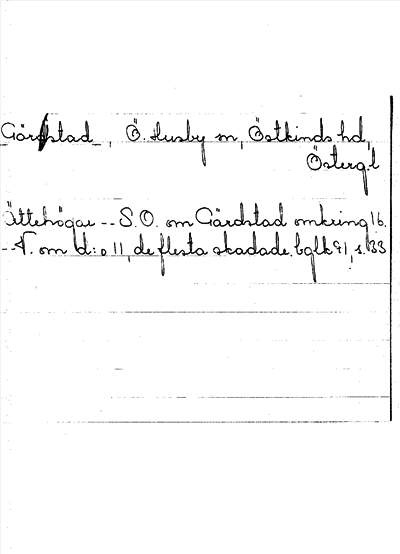 Gärdstad, Ö. Husby sn, Östkinds hd,
Österg.l
Ättehögar -- S.O. om Gärdstad omkring 16.
-- V. om d:o 11, de flesta skadade. bglk 91, s. 33